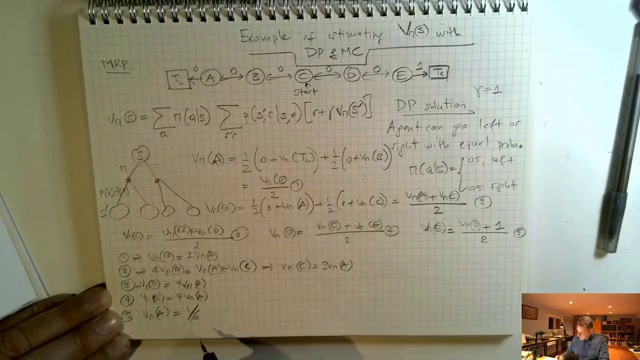 Example of estimating Vπ(s) with
DP & MC
MRP
TL ←0 A ←0→ B ←0→ C ←0→ D ←0→ E 1→ TR
start
Vπ(s) = Σa π(a|s) Σs'r p(s',r|s,a) [r+γVπ(s')]
DP solution γ=1
Agent can go left or
right with equal prob.
π(a|s) = { 0.5, left
0.5 right
S
π
s'
Vπ(A) = 1/2 (0+Vπ(TL)) + 1/2 (0+Vπ(B))
= Vπ(B)/2 ①
Vπ(B) = 1/2 (0+Vπ(A)) + 1/2 (0+Vπ(C)) =
Vπ(D) = (Vπ(C) + Vπ(E))/2 Vπ(E) = (Vπ(D) + 1)/2 ⑤
① ⇒ Vπ(B) = 2Vπ(A)
② ⇒ 4Vπ(A) = Vπ(A)+Vπ(C) ⇒ Vπ(C) = 3Vπ(A)
③ Vπ(D) = 4Vπ(A)
④
⑤ Vπ(A) = 1/6